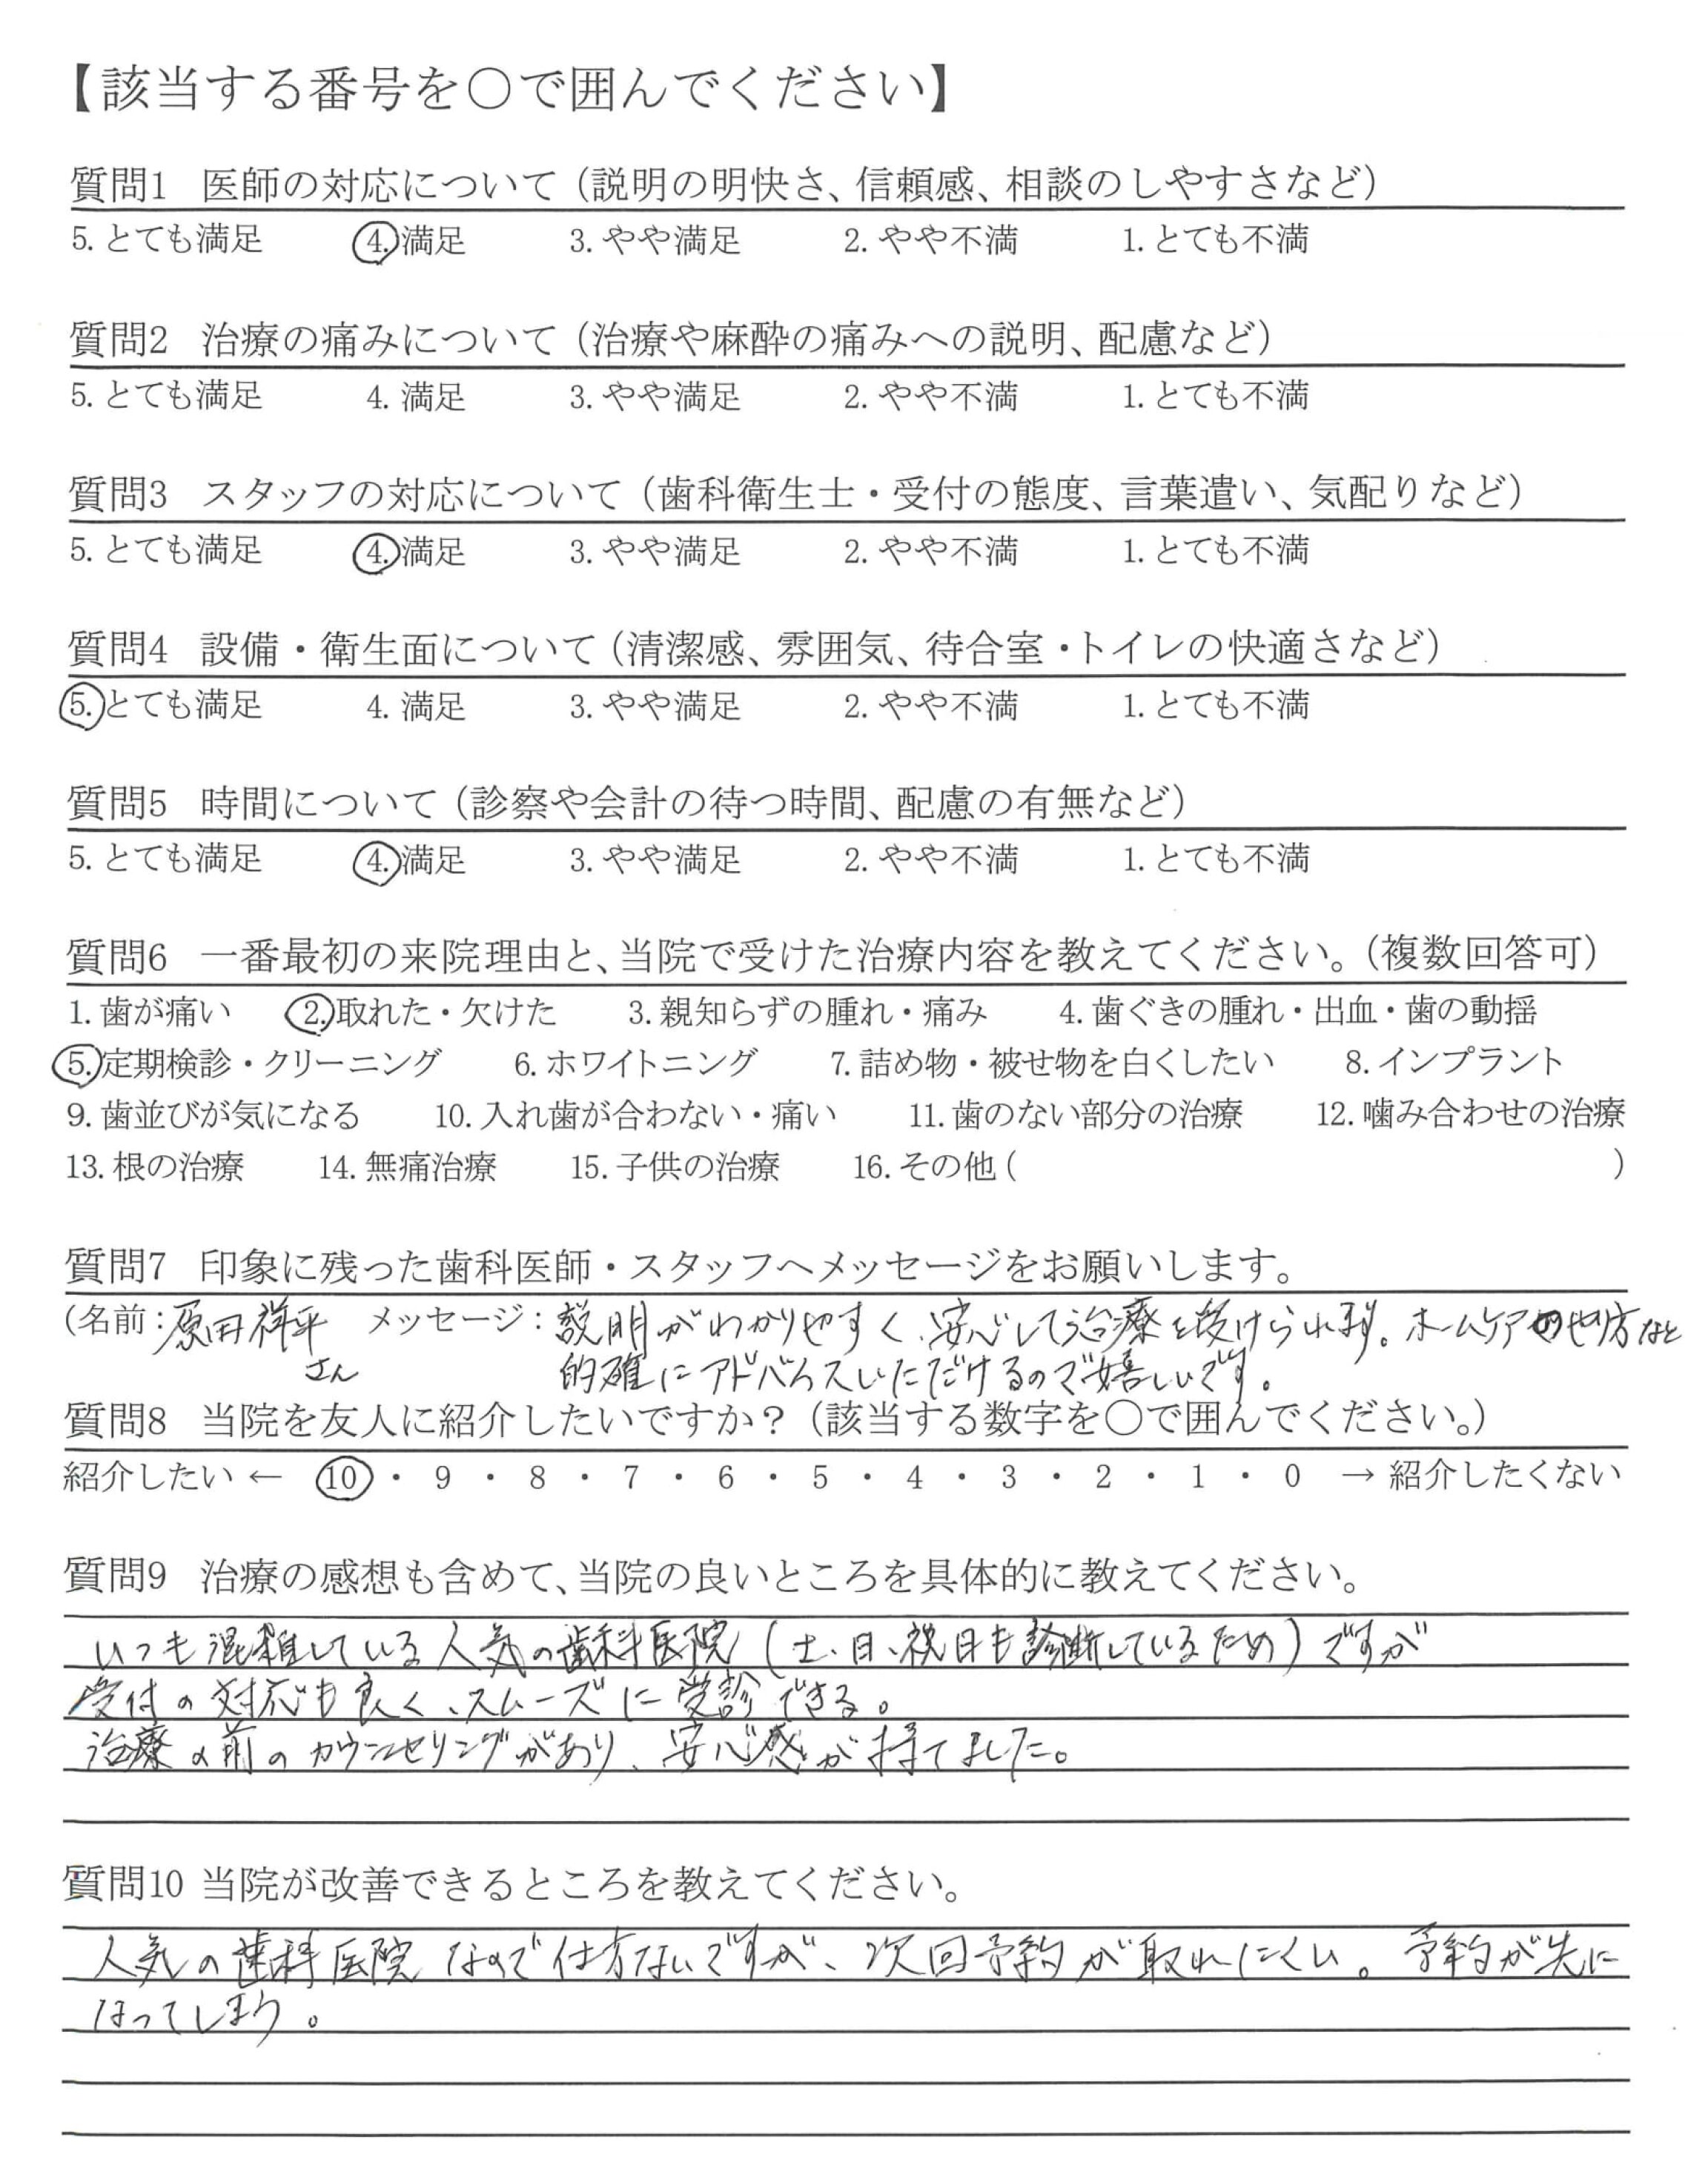 【該当する番号を○で囲んでください】
質問1 医師の対応について（説明の明快さ、信頼感、相談のしやすさなど）
5. とても満足 4. 満足 3. やや満足 2. やや不満 1. とても不満
質問2 治療の痛みについて（治療や麻酔の痛みへの説明、配慮など）
5. とても満足 4. 満足 3. やや満足 2. やや不満 1. とても不満
質問3 スタッフの対応について（歯科衛生士・受付の態度、言葉遣い、気配りなど）
5. とても満足 4. 満足 3. やや満足 2. やや不満 1. とても不満
質問4 設備・衛生面について（清潔感、雰囲気、待合室・トイレの快適さなど）
5. とても満足 4. 満足 3. やや満足 2. やや不満 1. とても不満
質問5 時間について（診察や会計の待つ時間、配慮の有無など）
5. とても満足 4. 満足 3. やや満足 2. やや不満 1. とても不満
質問6 一番最初の来院理由と、当院で受けた治療内容を教えてください。（複数回答可）
1. 歯が痛い 2. 取れた・欠けた 3. 親知らずの腫れ・痛み 4. 歯ぐきの腫れ・出血・歯の動揺
5. 定期検診・クリーニング 6. ホワイトニング 7. 詰め物・被せ物を白くしたい 8. インプラント
9. 歯並びが気になる 10. 入れ歯が合わない・痛い 11. 歯のない部分の治療 12. 噛み合わせの治療
13. 根の治療 14. 無痛治療 15. 子供の治療 16. その他（ ）
質問7 印象に残った歯科医師・スタッフへメッセージをお願いします。
（名前：原田祥平 メッセージ：説明がわかりやすく、安心して治療を受けられます。ホームケアの仕方など
さん 的確にアドバイスいただけるので嬉しいです。
質問8 当院を友人に紹介したいですか？（該当する数字を○で囲んでください。）
紹介したい ← 10 ・ 9 ・ 8 ・ 7 ・ 6 ・ 5 ・ 4 ・ 3 ・ 2 ・ 1 ・ 0 → 紹介したくない
質問9 治療の感想も含めて、当院の良いところを具体的に教えてください。
いつも混雑している人気の歯科医院（土、日、祝日も診断しているため）ですが
受付の対応も良く、スムーズに受診できる。
治療の前のカウンセリングがあり、安心感が持てました。
質問10 当院が改善できるところを教えてください。
人気の歯科医院なので仕方ないですが、次回予約が取れにくい。予約が先に
なってしまう。